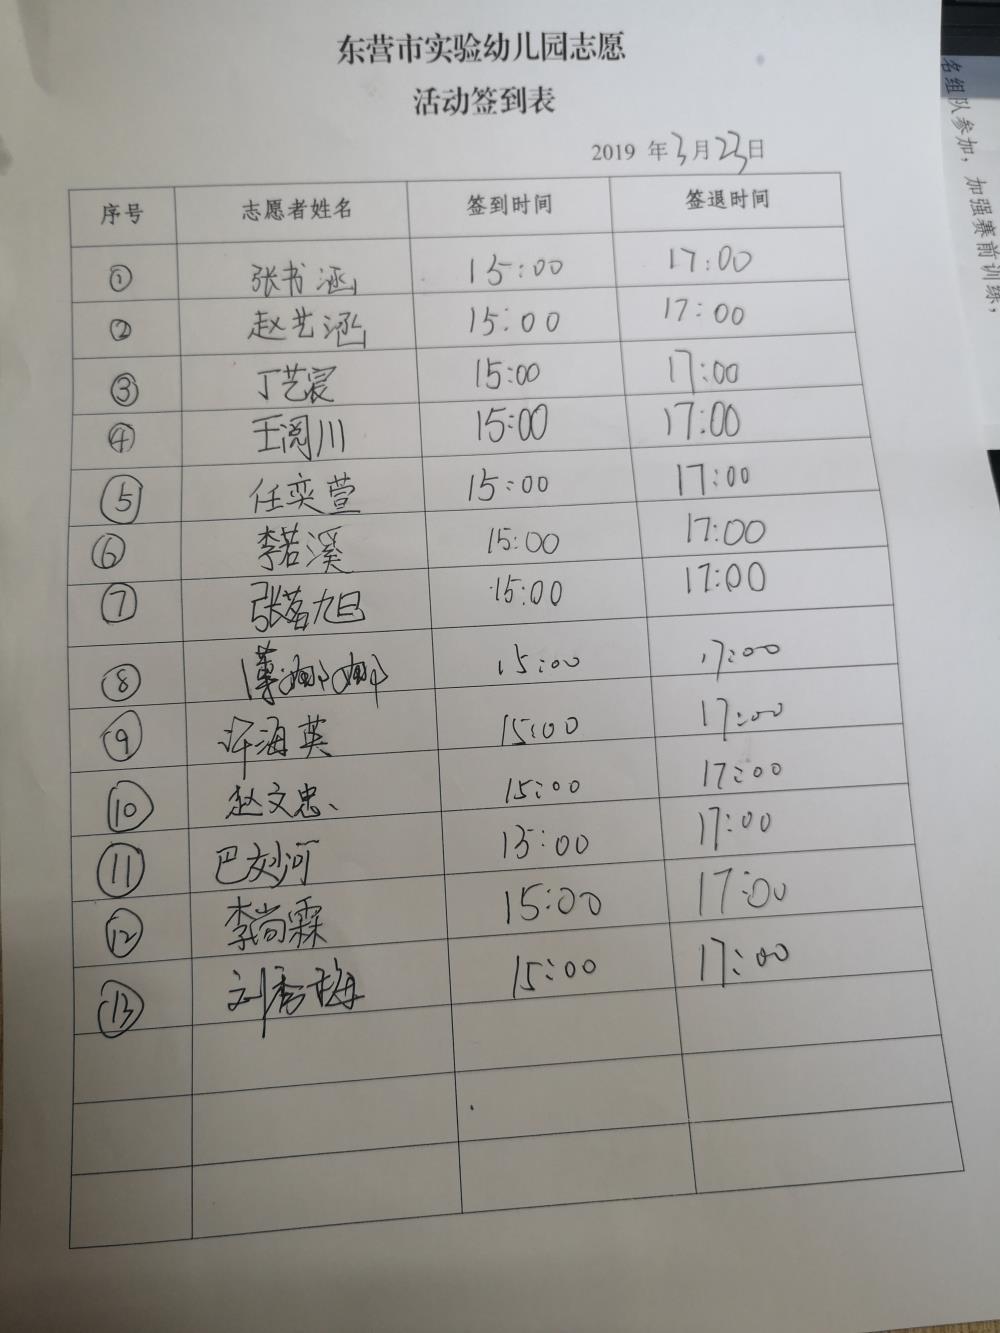 东营市实验幼儿园志愿
活动签到表
2019 年3月23日
序号 志愿者姓名 签到时间 签退时间
① 张书涵 15:00 17:00
② 赵艺涵 15:00 17:00
③ 丁艺宸 15:00 17:00
④ 王阅川 15:00 17:00
⑤ 任奕萱 15:00 17:00
⑥ 李若溪 15:00 17:00
⑦ 张茗旭 15:00 17:00
⑧ 薄娜娜 15:00 17:00
⑨ 许海英 15:00 17:00
⑩ 赵文忠 15:00 17:00
⑪ 巴刘河 15:00 17:00
⑫ 李尚霖 15:00 17:00
⑬ 刘秀梅 15:00 17:00
名组队参加，加强赛前训练，